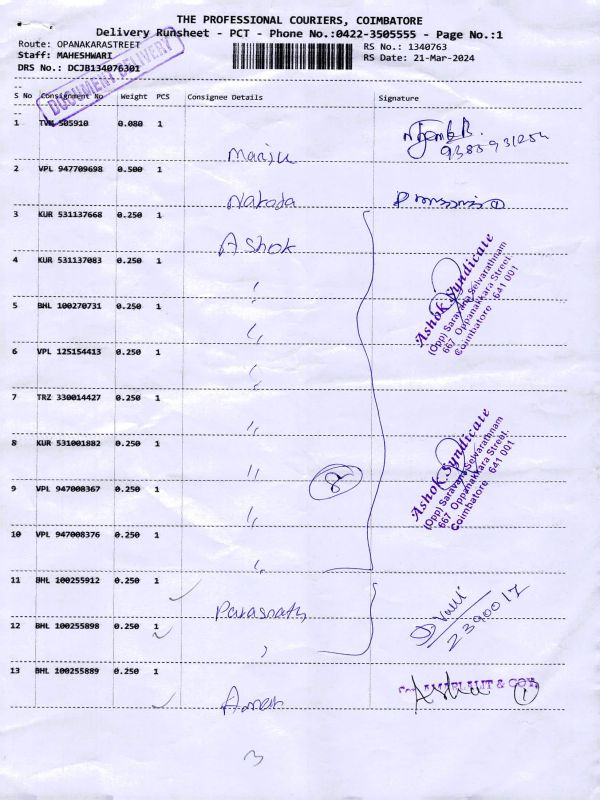 THE PROFESSIONAL COURIERS, COIMBATORE
Delivery Runsheet - PCT - Phone No.:0422-3505555 - Page No.:1
Route: OPANAKARASTREET RS No.: 1340763
Staff: MAHESHWARI RS Date: 21-Mar-2024
DRS No.: DCJB134076301
DOCUMENT DELIVERY
S No Consignment No Weight PCS Consignee Details Signature
1 505910 0.080 1
2 VPL 947709698 0.500 1
Nakoda
3 KUR 531137668 0.250 1
Ashok
4 KUR 531137083 0.250 1
〃
5 BHL 100270731 0.250 1
〃
6 VPL 125154413 0.250 1
〃
7 TRZ 330014427 0.250 1
〃
8 KUR 531001882 0.250 1
〃
9 VPL 947008367 0.250 1
〃
10 VPL 947008376 0.250 1
〃
8
Ashok Syndicate
(Opp) Saravana Selvarathnam
667, Oppanakkara Street,
Coimbatore - 641 001
Ashok Syndicate
(Opp) Saravana Selvarathnam
667, Oppanakkara Street,
Coimbatore - 641 001
11 BHL 100255912 0.250 1
Parasnath
12 BHL 100255898 0.250 1
〃
2390017
13 BHL 100255889 0.250 1
1
3